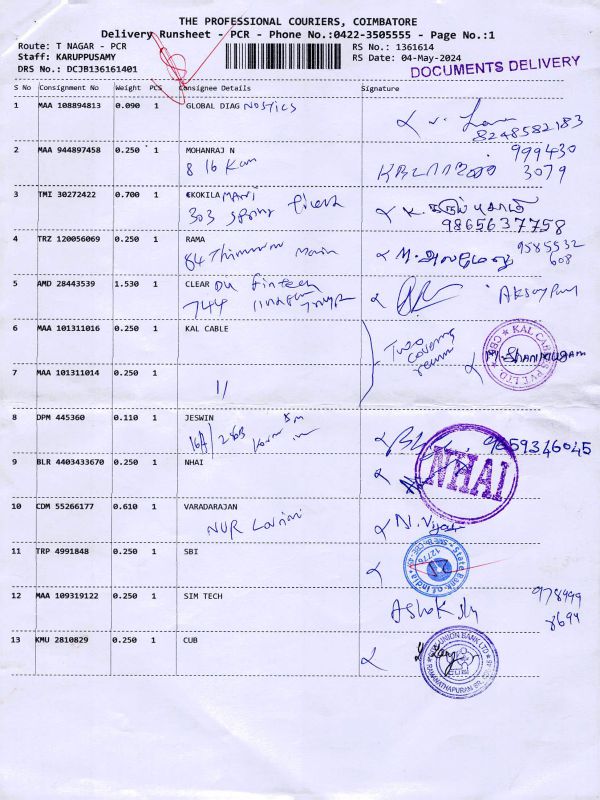 THE PROFESSIONAL COURIERS, COIMBATORE
Delivery Runsheet - PCR - Phone No.:0422-3505555 - Page No.:1
Route: T NAGAR - PCR
Staff: KARUPPUSAMY
DRS No.: DCJB136161401
RS No.: 1361614
RS Date: 04-May-2024
DOCUMENTS DELIVERY
S No Consignment No Weight PCS Consignee Details Signature
1 MAA 108894813 0.090 1 GLOBAL DIAGNOSTICS
8248582183
2 MAA 944897458 0.250 1 MOHANRAJ N
999430
3079
3 TMI 30272422 0.700 1 KOKILA MANI
303 Spring
9865637758
4 TRZ 120056069 0.250 1 RAMA
84 Main
9585532
608
5 AMD 28443539 1.530 1 CLEAR DU Fintech
744
6 MAA 101311016 0.250 1 KAL CABLE
Two covers
KAL CABLES PVT LTD.
M. Shanmugam
7 MAA 101311014 0.250 1
8 DPM 445360 0.110 1 JESWIN
9659346045
9 BLR 4403433670 0.250 1 NHAI
NHAI
10 CDM 55266177 0.610 1 VARADARAJAN
N. Vijay
11 TRP 4991848 0.250 1 SBI
State Bank of India
12 MAA 109319122 0.250 1 SIM TECH
Ashok
978999
8694
13 KMU 2810829 0.250 1 CUB
UNION BANK LTD
CUB